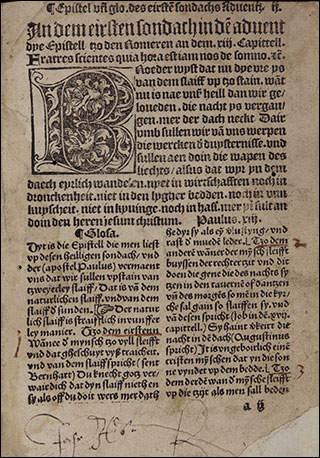 ¶Epistel vn̄ glo. des eirstē sondachs Aduentz. ij.
In dem eirsten sondach in dē aduent
dye Epistell tzo den Romeren an dem. xiij. Capittell.
Fratres scientes quia hora est iam nos de somno. ꝛc̄.
Broeder wyst dat nu dye vre ys
van dem slaiff vp tzo stain. wāt
nu is nae vnß heill dan wir ge-
loueden. die nacht ys vergan-
gen. mer der dach neckt. Dair
vmb sullen wir vā vns werpen
die wercken d' duysternisse. vnd
sullen aen doin die wapen des
liechtes/ alsus dat wyr yn dem
daech eyrlich wandelen. nyet in wirtschafften noch in
dronckenheit. niet in den lygher bedden. noch in vn-
kuyscheit. niet in kyuinge. noch in haß. mer yr sult an
doin den heren jesum christum. Paulus. xiij.
¶Glosa.
Dyt is die Epistell die men liest
vp desen heiligen sondach/ vnd
der (apostel Paulus) vermanet
vns dat wir sullen vpstain van
tzweyerley slaiff/ Dat is vā dem
naturlichen slaiff. vnd van dem
slaiff d' sunden. Der natur
lich slaiff is straifflich in vunffer
ley manier. Tzo dem eirsten
Wānee d' mynsch tzo vyll slaifft
vnd dat gheschuyt vyß traicheit.
vnd van dem slaiff spricht (sent
Bernhart) Du knecht gotz ver-
wair dich dat dyn slaiff nieth en
sy als off du doit weres mer dat
rast d' muede leder. Tzo dem
anderē wāneer der mȳsch slaifft
buyssen der rechter tzyt vnd dit
doen die gene die des nachts sy
tzen in den tauernē off dantzen
vnd des morgēs so mē in die kyr
che sal gain so slaiffen sy. vnd
vā desen spricht (Job in dē. xvij.
capittell.) Sy haint v'kiert die
nacht in dē dach (Augustinus
spricht) It is vngeboirlich einē
cristen mȳschen dat yn die son-
ne vyndet vp dem bedde. Tzo
dem derdē wan d' mȳsche slaifft
vp die tzijt als men sall beden
a ij